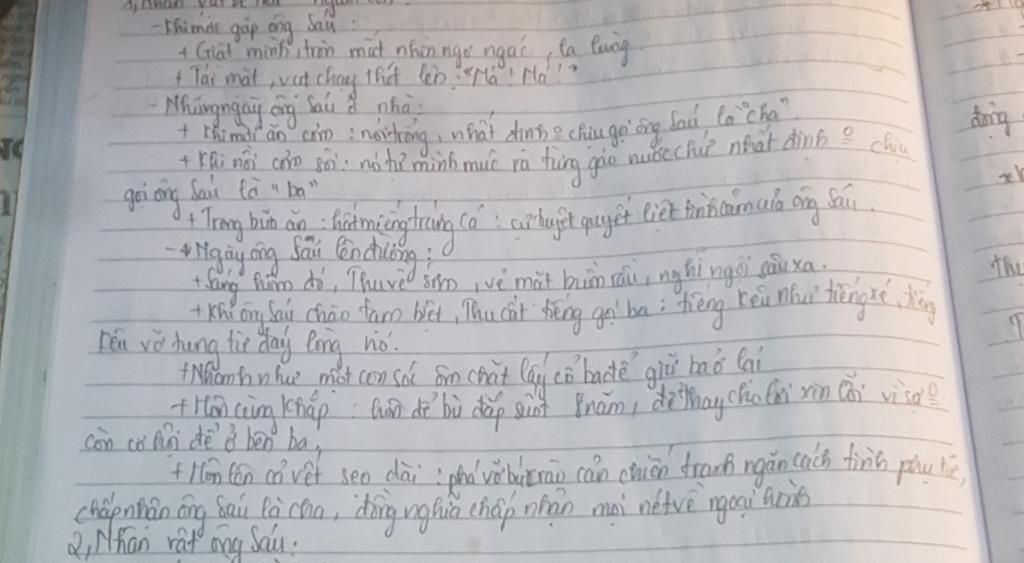 1, Nhân vật bé Thu
- Khi mới gặp ông Sáu:
+ Giật mình, tròn mắt nhìn ngơ ngác, lạ lùng.
+ Tái mặt, vụt chạy thét lên: "Má! Má!"
- Những ngày ông Sáu ở nhà:
+ Khi mời ăn cơm: nói trống, nhất định o chịu gọi ông Sáu là "cha"
+ Khi nồi cơm sôi: nó tự mình múc ra từng gáo nước chứ nhất định o chịu
gọi ông Sáu là "ba"
+ Trong bữa ăn: hất miếng trứng cá: cự tuyệt quyết liệt tình cảm của ông Sáu.
→ Ngày ông Sáu lên đường:
+ Sáng hôm đó, Thu về sớm, vẻ mặt buồn rầu, nghĩ ngợi sâu xa.
+ Khi ông Sáu chào tạm biệt, Thu cất tiếng gọi ba: tiếng kêu như tiếng xé, tiếng
kêu vỡ tung từ đáy lòng nó.
+ Nhanh như một con sóc ôm chặt lấy cổ ba để giữ ba ở lại
+ Hôn cùng khắp: hôn để bù đắp suốt 8 năm, để thay cho lời xin lỗi vì sợ o
còn cơ hội để ở bên ba,
+ Hôn lên cả vết sẹo dài: phá vỡ bức rào cản chiến tranh ngăn cách tình phụ tử,
chấp nhận ông Sáu là cha, đồng nghĩa chấp nhận mọi nét về ngoại hình
2, Nhân vật ông Sáu:
đồng